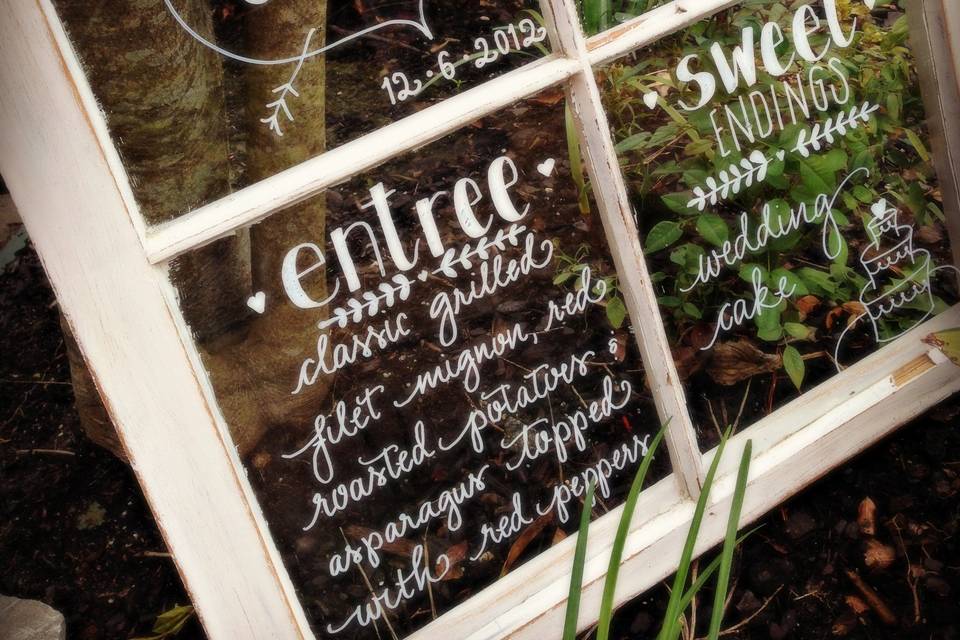 12·6·2012
entree
classic grilled
filet mignon, red
roasted potatoes &
asparagus topped
with red peppers
sweet
ENDINGS
wedding
cake